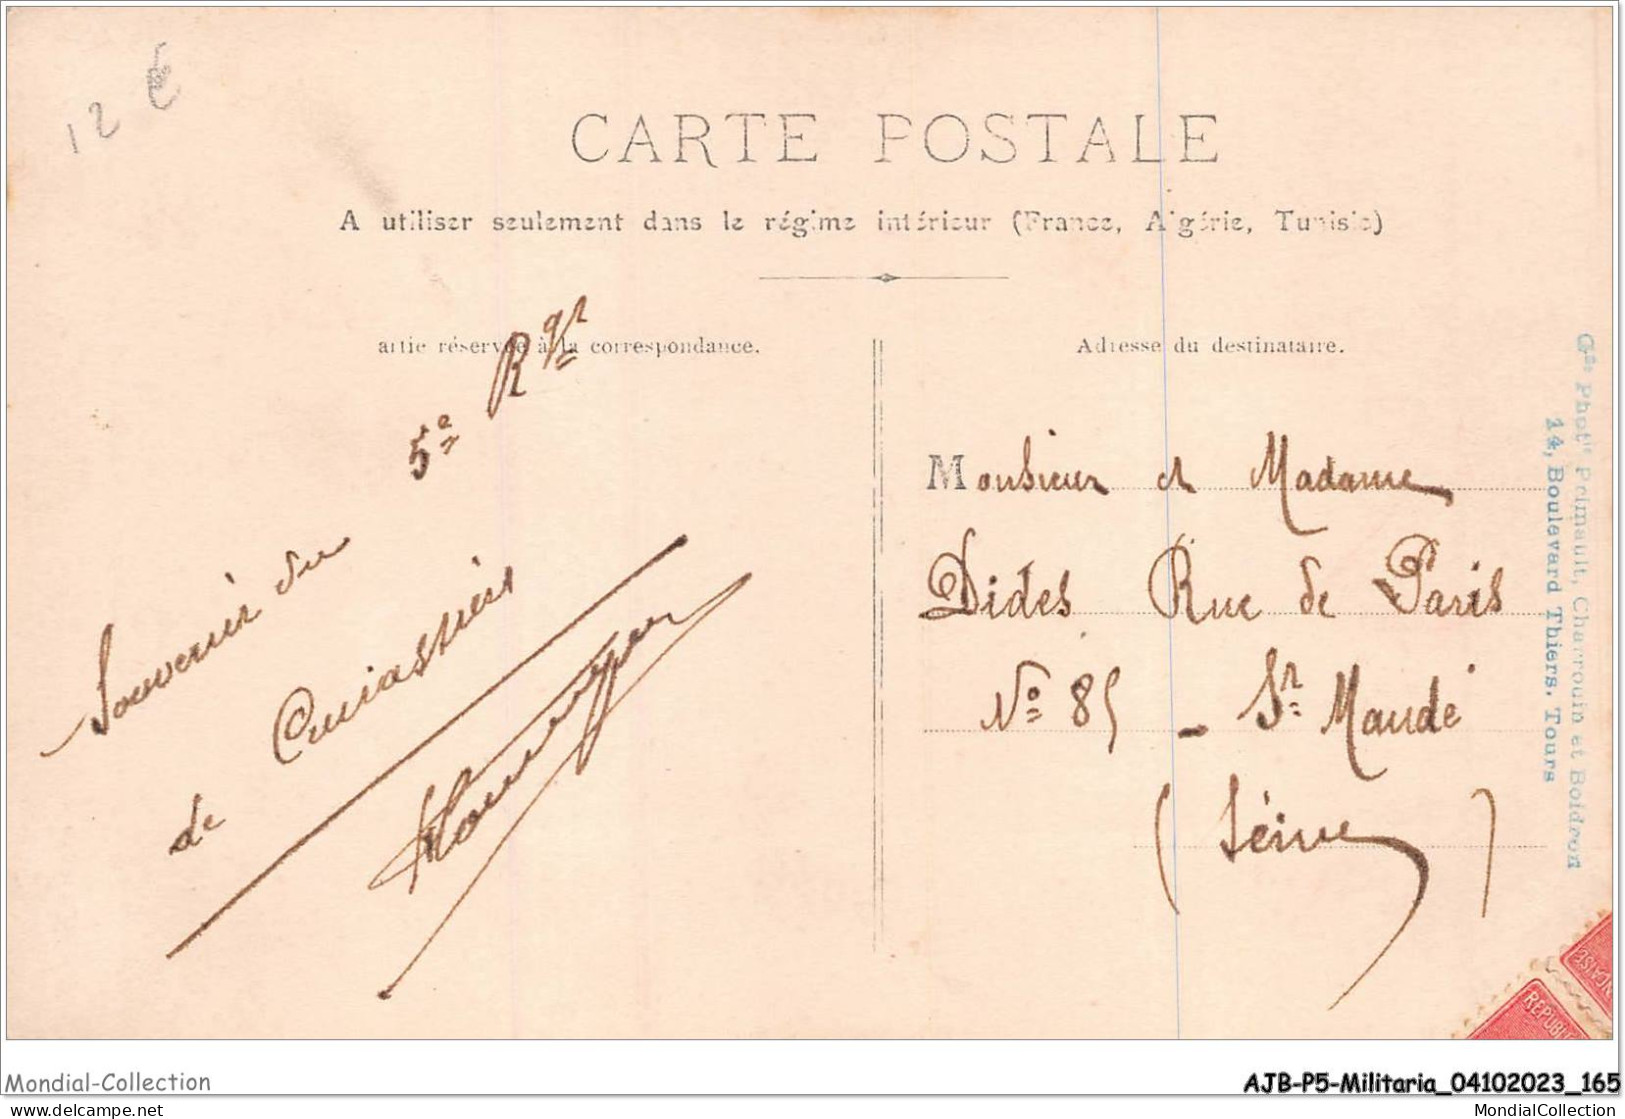 12 €
CARTE POSTALE
A utiliser seulement dans le régime intérieur (France, Algérie, Tunisie)
artie réservée à la correspondance.
Souvenir du 5e Rgt
de Cuirassiers
Adresse du destinataire.
Monsieur et Madame
Dides Rue de Paris
No 85 - St Maudé
(Séine)
Gds Photies Primault, Charrouin et Boideron
14, Boulevard Thiers. Tours
REPUBLI
NÇAISE
Mondial-Collection
AJB-P5-Militaria_04102023_165
www.delcampe.net
MondialCollection